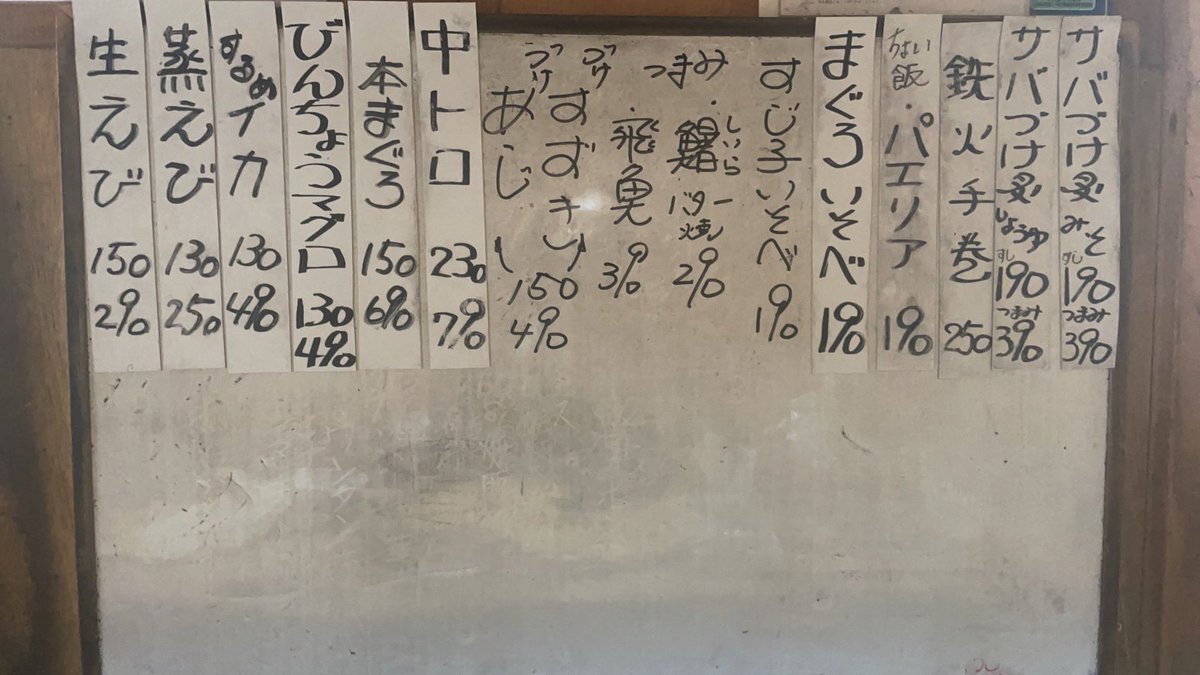 サバづけ炙みそ すし190 つまみ390
サバづけ炙しょうゆ すし190 つまみ390
鉄火手巻 250
ちょい飯・パエリア 190
まぐろいそべ 190
すじ子いそべ 190
つまみ・鱰 しいら バター焼 290
づけ・飛魚 390
づけ すずき
あじ 150 490
中トロ 230 790
本まぐろ 150 690
びんちょうマグロ 130 490
するめイカ 130 490
蒸えび 130 250
生えび 150 290